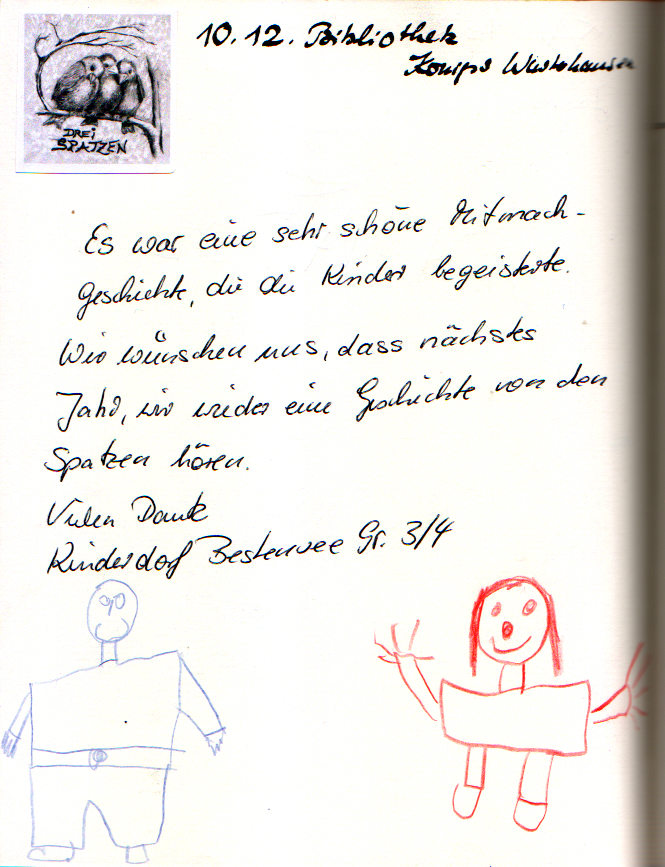 DREI
SPATZEN
10.12. Bibliothek
Königs Wusterhausen
Es war eine sehr schöne Mitmach-
geschichte, die die Kinder begeisterte.
Wir wünschen uns, dass nächstes
Jahr, wir wieder eine Geschichte von den
Spatzen hören.
Vielen Dank
Kinderdorf Bestensee Gr. 3/4